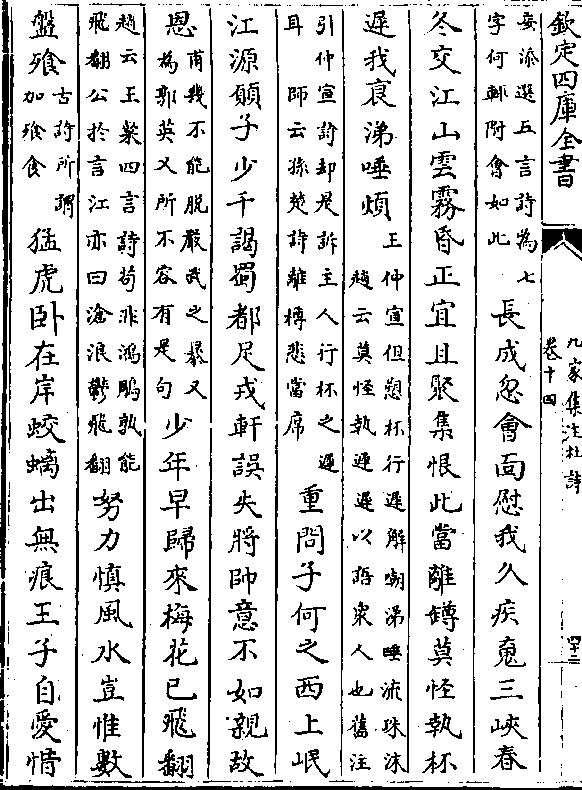 欽定四庫全書
九家集注杜詩
卷十四
四十二
妄添選五言詩為七
字何輒附會如此
長成忽會面慰我久疾䰟三峽春
冬交江山雲霧昏正宜且聚集恨此當離罇莫怪執杯
遲我衰涕唾煩
王仲宣但愬杯行遲解嘲涕唾流珠沫
趙云莫怪執遲遲以語衆人也舊注
引仲宣詩却是訴主人行杯之遲
耳師云孫楚詩離樽悲當席
重問子何之西上岷
江源願子少干謁蜀都足戎軒誤失將帥意不如親故
恩
甫幾不能脱嚴武之暴又
為郭英乂所不容有是句
少年早歸來梅花已飛翻
趙云王粲四言詩苟非鴻鵰孰能
飛翻公於言江亦曰滄浪鬱飛翻
努力慎風水豈惟數
盤飱
古詩所謂
加飱食
猛虎卧在岸蛟螭出無痕王子自愛惜